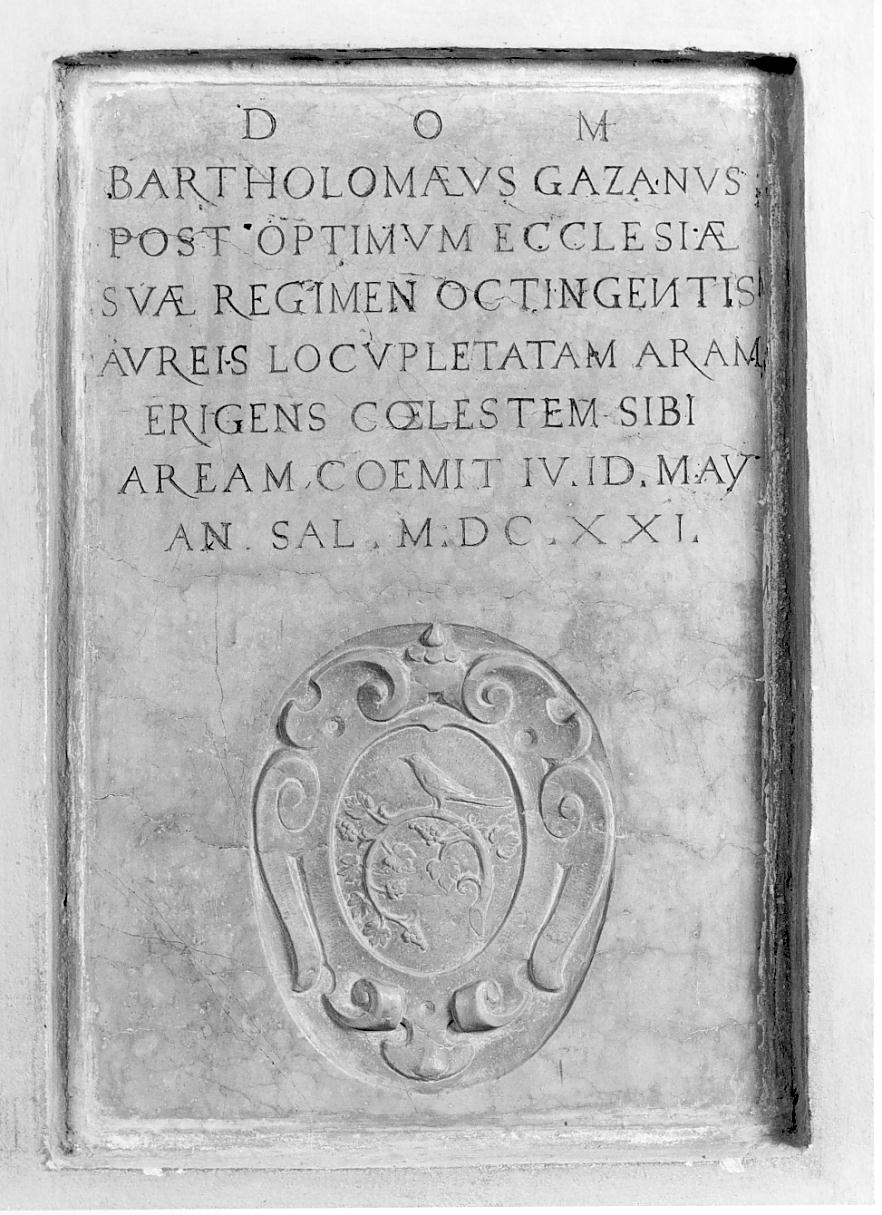 D O M
BARTHOLOMÆVS GAZANVS
POST OPTIMVM ECCLESIÆ
SVÆ REGIMEN OCTINGENTIS
AVREIS LOCVPLETATAM ARAM
ERIGENS CŒLESTEM SIBI
AREAM COEMIT IV. ID. MAY
AN. SAL. M.DC.XXI.